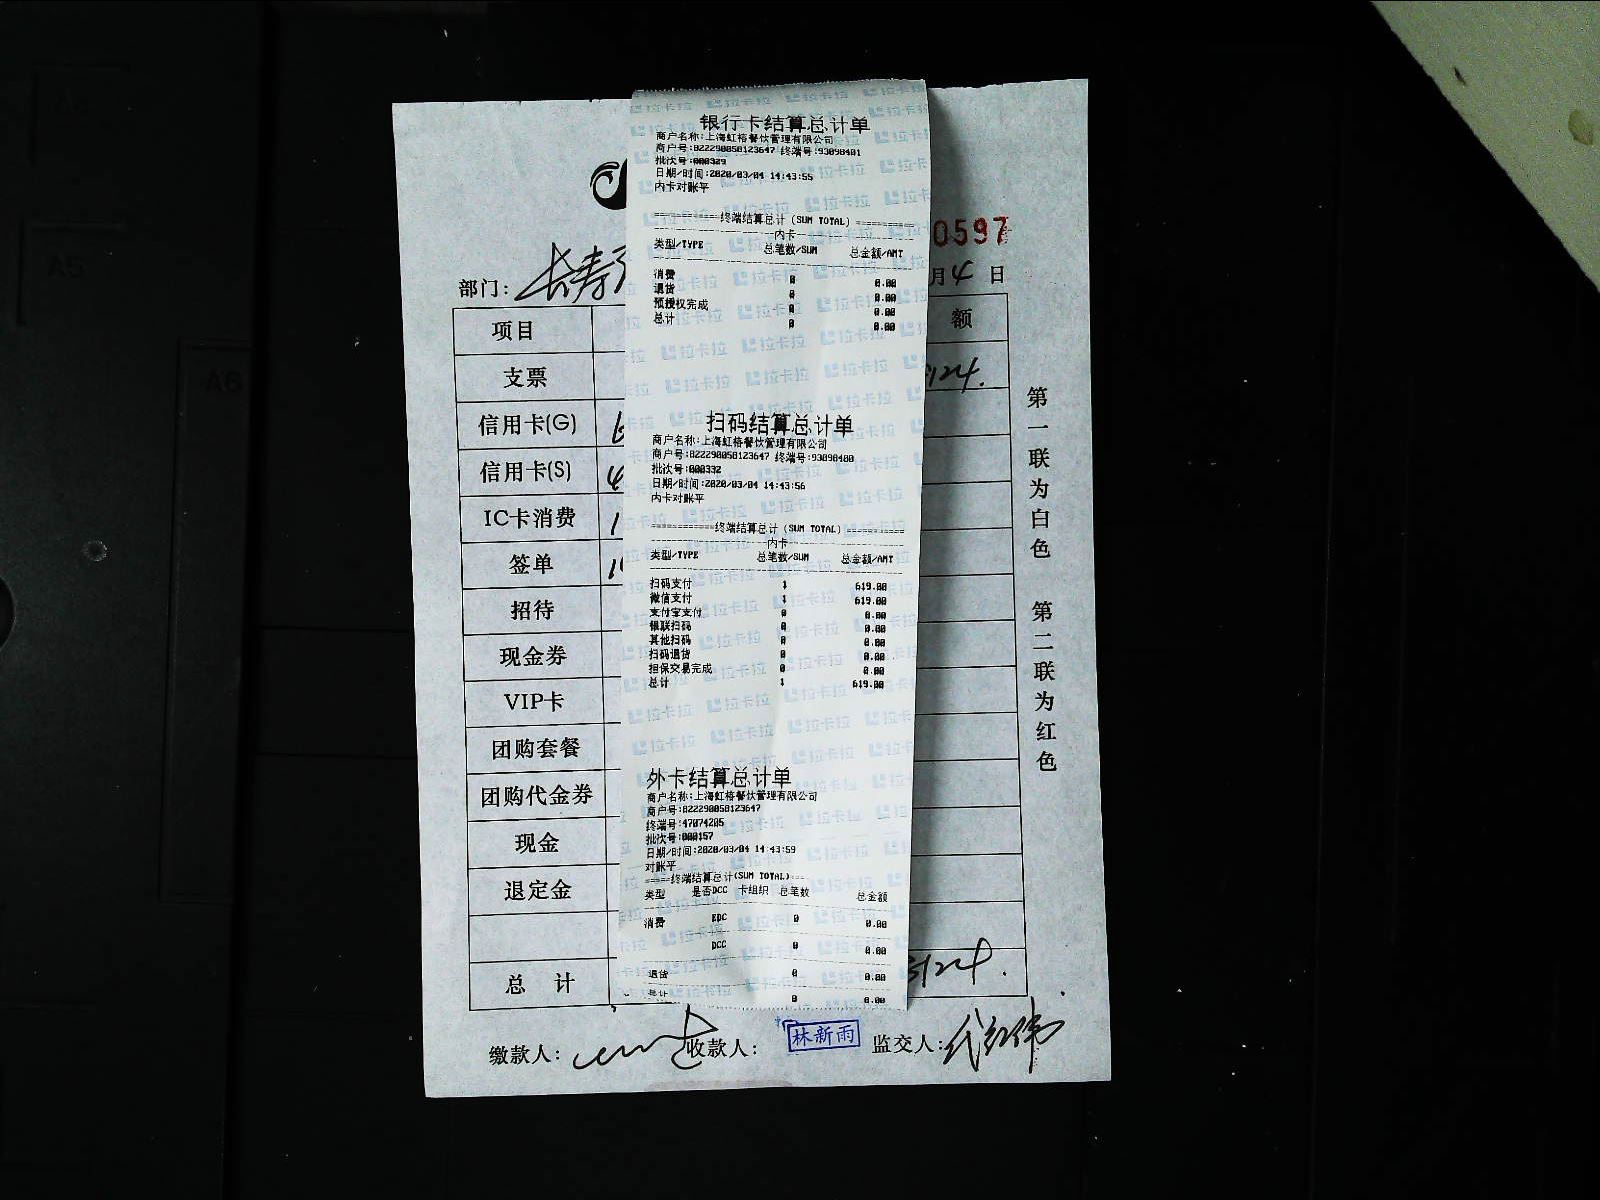 银行卡结算总计单
商户名称:上海虹榕餐饮管理有限公司
商户号:822290058123647 终端号:93098401
批次号:000329
日期/时间:2020/03/04 14:43:55
内卡对账平
终端结算总计(SUM TOTAL)
内卡
类型/TYPE 总笔数/SUM 总金额/AMT
消费 0 0.00
退货 0 0.00
预授权完成 0 0.00
总计 0 0.00
扫码结算总计单
商户名称:上海虹榕餐饮管理有限公司
商户号:822290058123647 终端号:93098400
批次号:000332
日期/时间:2020/03/04 14:43:56
内卡对账平
终端结算总计(SUM TOTAL)
内卡
类型/TYPE 总笔数/SUM 总金额/AMT
扫码支付 1 619.00
微信支付 1 619.00
支付宝支付 0 0.00
银联扫码 0 0.00
其他扫码 0 0.00
扫码退货 0 0.00
担保交易完成 0 0.00
总计 1 619.00
外卡结算总计单
商户名称:上海虹榕餐饮管理有限公司
商户号:822290058123647
终端号:47074205
批次号:000157
日期/时间:2020/03/04 14:43:59
对账平
终端结算总计(SUM TOTAL)
类型 是否DCC 卡组织 总笔数 总金额
消费 EDC 0 0.00
DCC 0 0.00
退货 0 0.00
总计 0 0.00
0597
部门: 长寿 月 4 日
项目 额
支票 124.
信用卡(G)
信用卡(S)
IC卡消费
签单
招待
现金券
VIP卡
团购套餐
团购代金券
现金
退定金
总 计 3124.
缴款人: 收款人: 林新雨 监交人:
第一联为白色 第二联为红色
拉卡拉
A5
A6